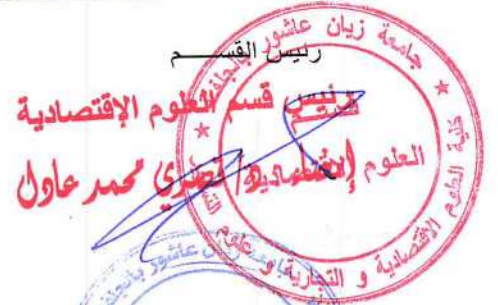 رئيس القســـم
رئيس قسم العلوم الإقتصادية
محمد عادل
جامعة زيان عاشور بالجلفة
كلية العلوم الاقتصادية و التجارية و علوم
العلوم
عاشور بالجلفة